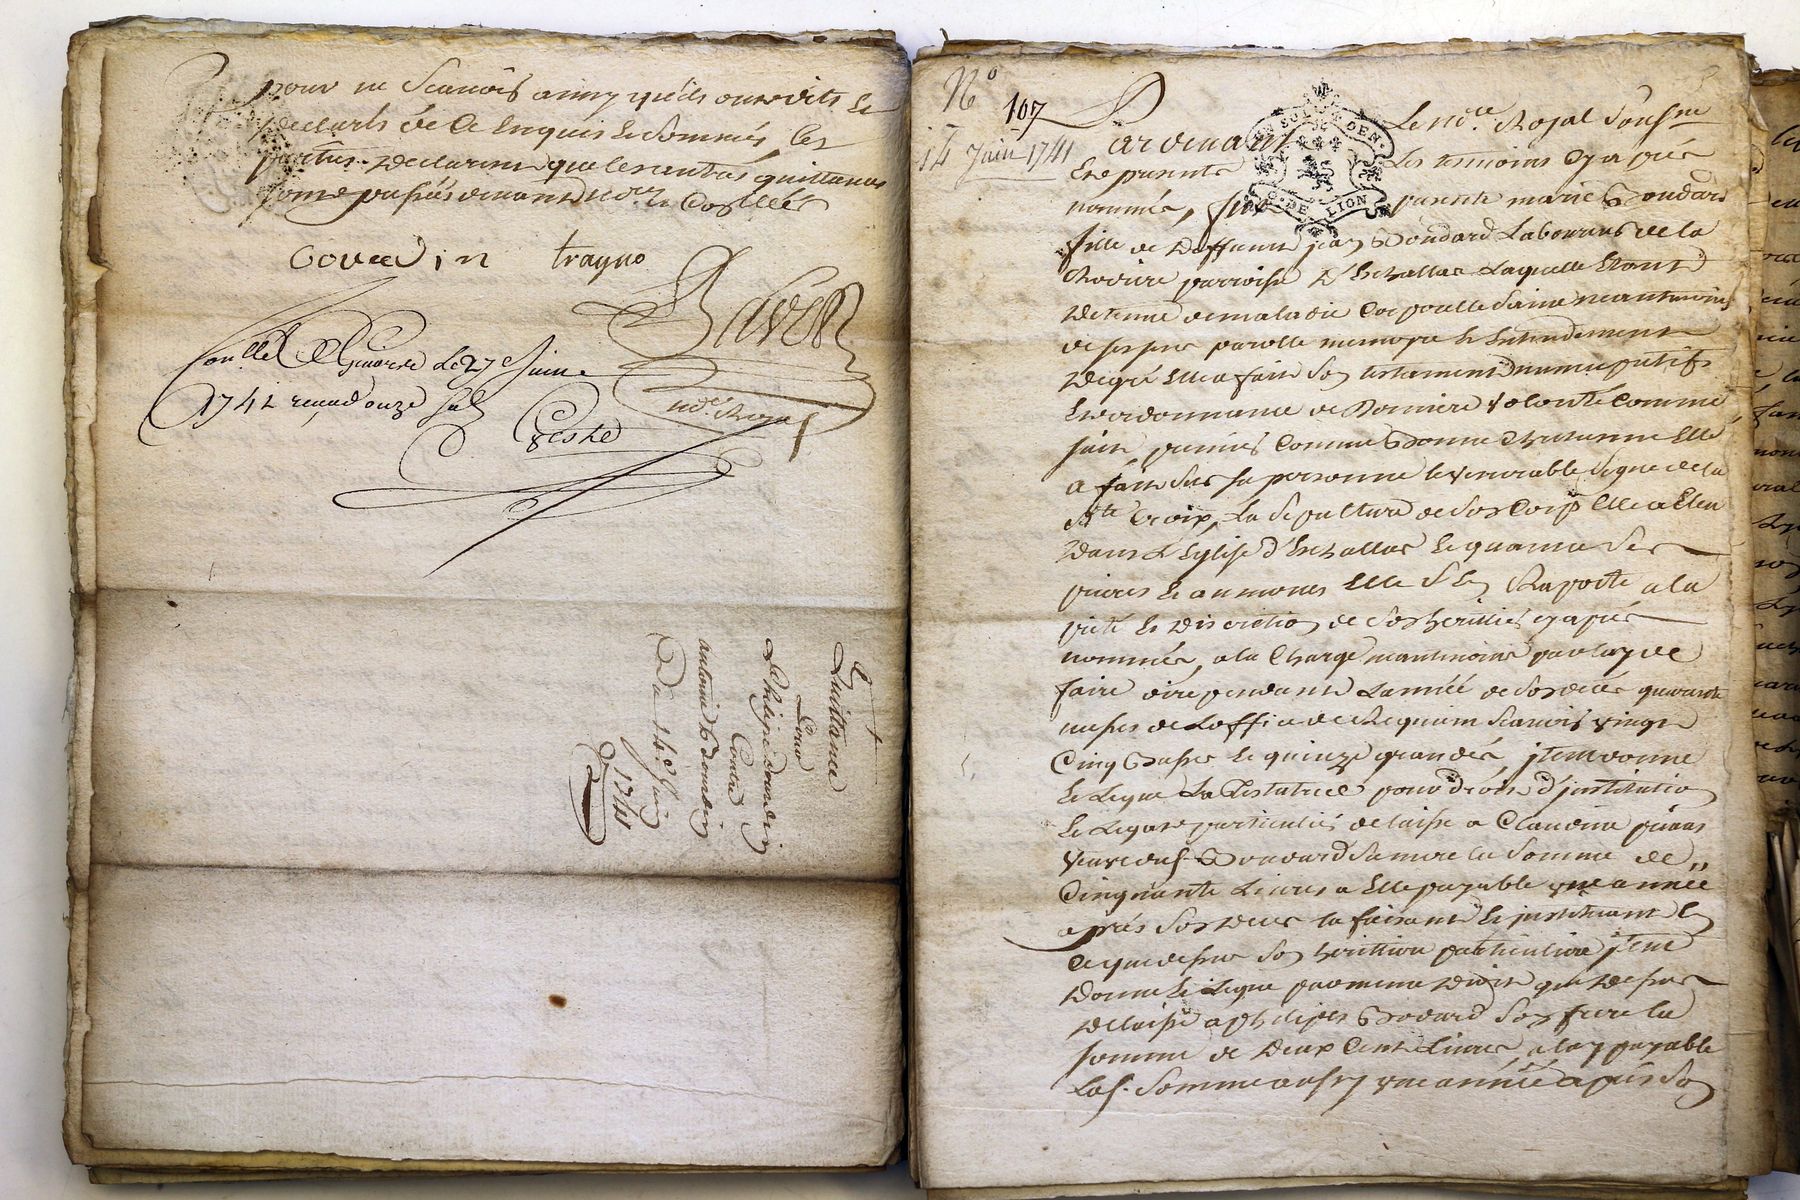 pour un Scavoir ainsy qu'ils ont dits
declarés de Ce Enquis et Sommés, les
parties declarent que les autres quittances
not.re
goudin tragno
Baven
not.e Royal
Con.llé a Givors Le 27e Juin
1741 reçu d'ouze sols
Coste
Quittance
Pour
Philipe
Contre
antoine
Du 14e Juin
1741
N° 107
14 Juin 1741
Pardevant Le no.re Royal Sousne
Et en presence Des temoins Cy apres
nommés, fut presente marie Goudard
fille de deffunt jean Goudard Laboureur de la
Rodiere parroisse D'Echallas Laquelle Etant
detenue de maladie Corporelle Saine neantmoins
de ses sens parolle memoire Et Entendement
de gré Elle a fait Son testament nuncupatif
Et ordonnance de Derniere volonté Comme
suit premier Comme Bonne Chretienne Elle
a fait Sur sa personne le venerable Signe de la
Ste Croix, La Sepulture de Son Corps Elle a Eleu
dans L'Eglise d'Echallas Et quant a Ses
prieres Et aumones Elle S'En Raporte a la
pieté Et discretion de Son heritier cy apres
nommée, a la Charge neantmoins par luy de
faire dire pendant L'année de Son decés quarante
messes de L'office de Requiem Scavoir vingt
Cinq Basses Et quinze grandes, jtem donne
Et Legue La Testatrice pour droit d'jnstitution
Et Legat particulier delaisse a Claudine
veuve dud. Goudard Sa mere la Somme de
Cinquante Livres a Elle payable une année
apres Son deces la faisant Et jnstituant En
Ce que dessus Son heritiere particuliere jtem
donne Et Legue par meme droit que dessus
delaisse a philipes Goudard Son frere la
somme de deux Cents Livres, a luy payable
Lad. Somme aussy une année apres Son